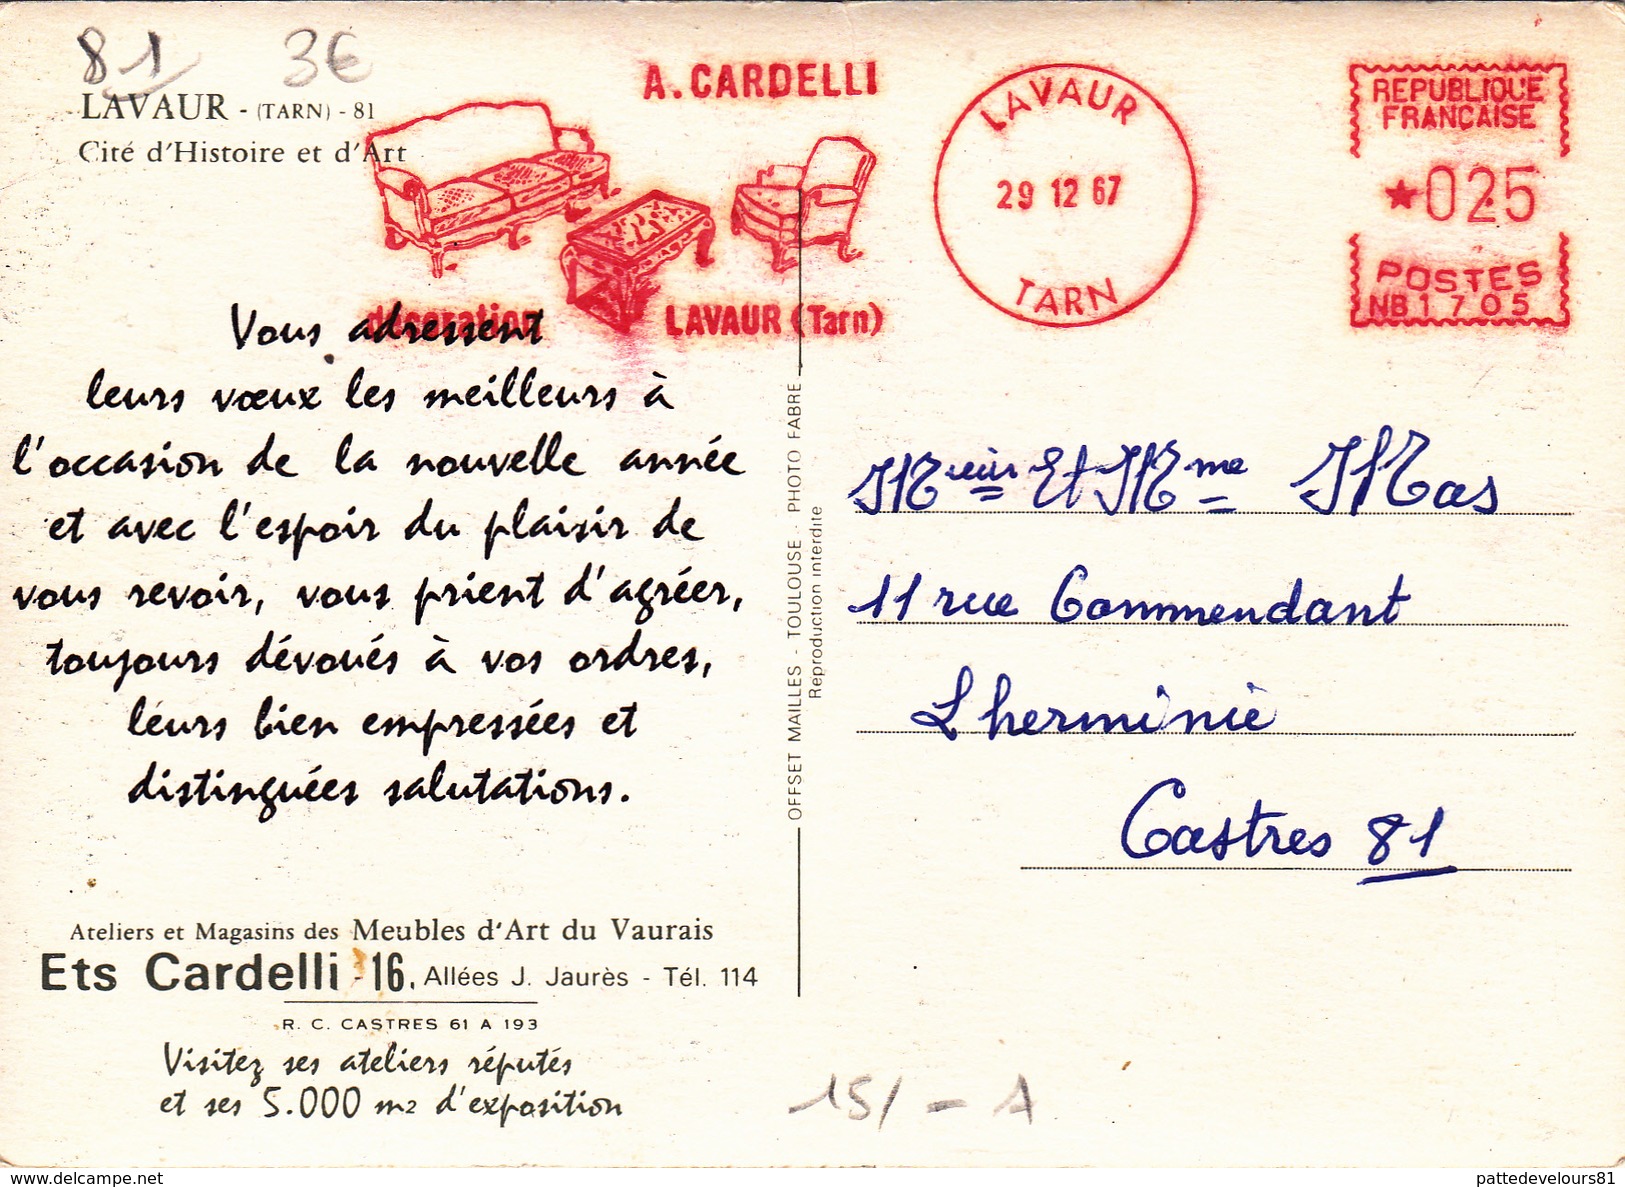 81 3€
LAVAUR - (TARN) - 81
Cité d'Histoire et d'Art
A. CARDELLI
décoration LAVAUR (Tarn)
LAVAUR
29 12 67
TARN
REPUBLIQUE
FRANÇAISE
★025
POSTES
NB1705
Vous adressent
leurs vœux les meilleurs à
l'occasion de la nouvelle année
et avec l'espoir du plaisir de
vous revoir, vous prient d'agréer,
toujours dévoués à vos ordres,
leurs bien empressées et
distinguées salutations.
Ateliers et Magasins des Meubles d'Art du Vaurais
Ets Cardelli - 16, Allées J. Jaurès - Tél. 114
R. C. CASTRES 61 A 193
Visitez ses ateliers réputés
et ses 5.000 m2 d'exposition
OFFSET MAILLES - TOULOUSE - PHOTO FABRE
Reproduction interdite
Mr Et Mme Mas
11 rue Commendant
Lherminie
Castres 81
15/ - A
www.delcampe.net
pattedevelours81